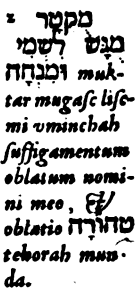 z מֻקְטָר
מֻגָּשׁ לִשְׁמִי
וּמִנְחָה muk-
tar mugaſc liſc-
mi vminchah
ſuffigamentum
oblatum nomi-
ni meo, &
oblatio טְהוֹרָה
tehorah mun-
da.